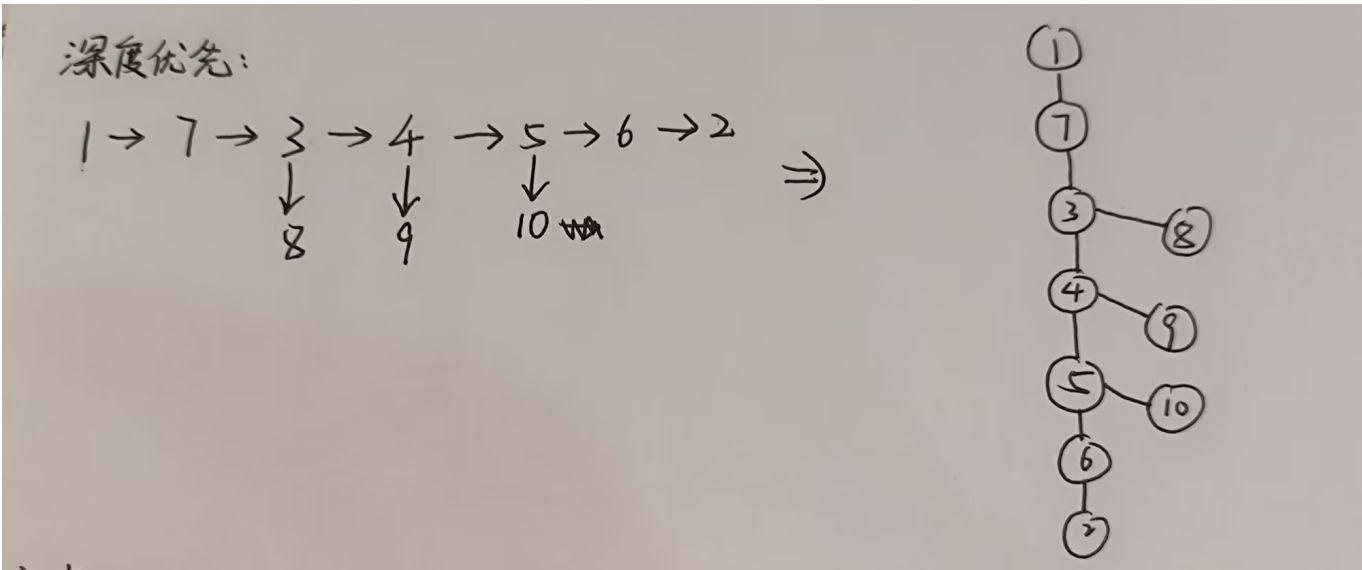 深度优先:
1 → 7 → 3 → 4 → 5 → 6 → 2
↓ ↓ ↓
8 9 10
⇒
1
7
3 8
4
9
5
10
6
2